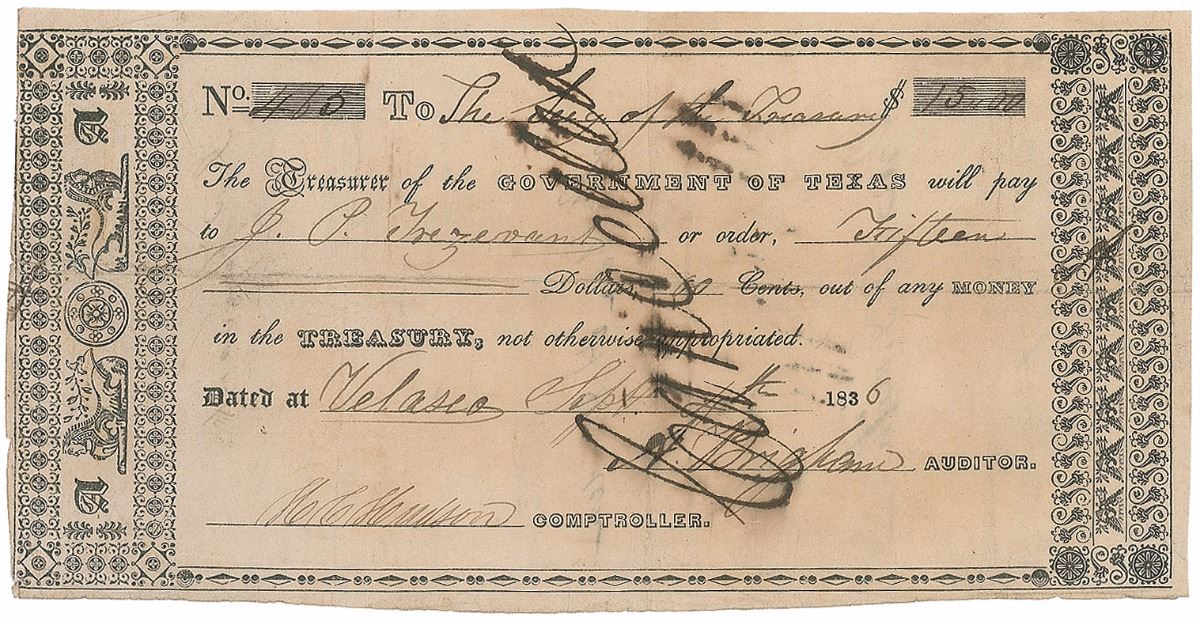 No. 410 To The Secy of the Treasury $ 15.00
The Treasurer of the GOVERNMENT OF TEXAS will pay
to J. P. Trezevant or order, Fifteen
Dollars 00 Cents, out of any MONEY
in the TREASURY, not otherwise appropriated.
Dated at Velasco Sept th 1836
H. C. Hudson COMPTROLLER.
A. Brigham AUDITOR.
A
A
Cancelled